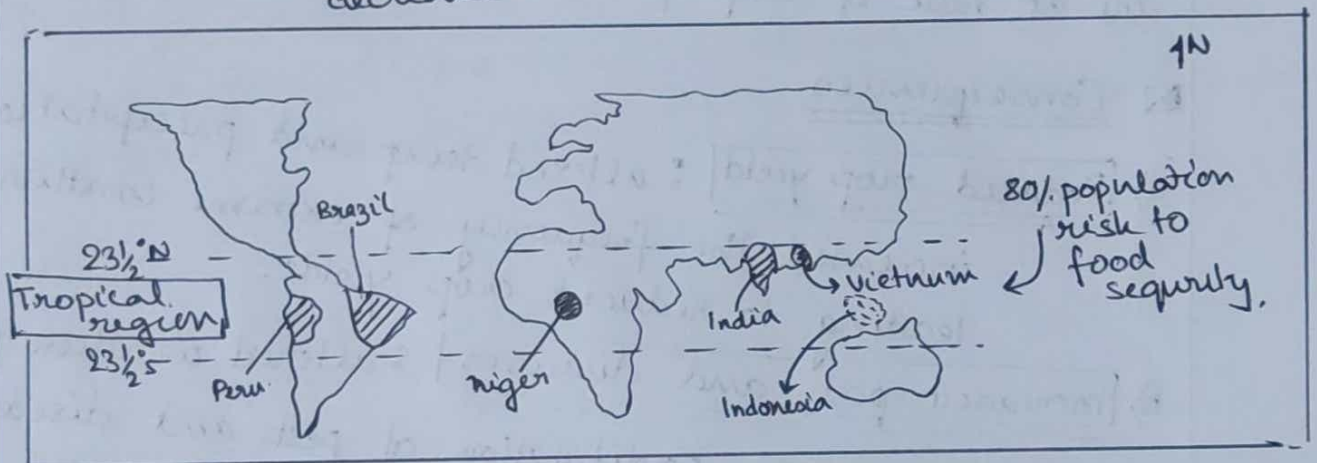 ↑N
Brazil
23½°N
Tropical
region
23½°S
Peru
niger
India
Vietnum
Indonesia
80% population
risk to
food
sequrity.